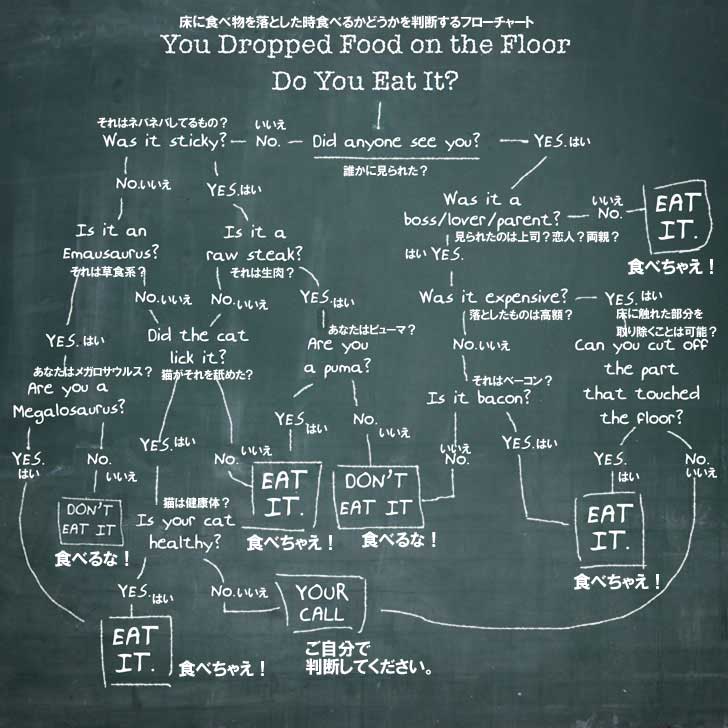 床に食べ物を落とした時食べるかどうかを判断するフローチャート
You Dropped Food on the Floor
Do You Eat It?
それはネバネバしてるもの？
Was it sticky?
いいえ
No.
Did anyone see you?
誰かに見られた？
YES.はい
No.いいえ
YES.はい
Was it a
boss/lover/parent?
見られたのは上司？恋人？両親？
いいえ
No.
EAT
IT.
食べちゃえ！
Is it an
Emausaurus?
それは草食系？
Is it a
raw steak?
それは生肉？
はい YES.
No.いいえ
No.いいえ
YES.はい
Was it expensive?
落としたものは高額？
YES.はい
YES.はい
Did the cat
lick it?
猫がそれを舐めた？
あなたはピューマ？
Are you
a puma?
No.いいえ
床に触れた部分を
取り除くことは可能？
Can you cut off
the part
that touched
the floor?
あなたはメガロサウルス？
Are you a
Megalosaurus?
それはベーコン？
Is it bacon?
YES.はい
No.
いいえ
YES.
はい
No.
いいえ
YES.
はい
No.
いいえ
いいえ
No.
YES.はい
YES.
はい
No.
いいえ
DON'T
EAT IT
食べるな！
猫は健康体？
Is your cat
healthy?
EAT
IT.
食べちゃえ！
DON'T
EAT IT
食べるな！
EAT
IT.
食べちゃえ！
YES.はい
No.いいえ
YOUR
CALL
ご自分で
判断してください。
EAT
IT.
食べちゃえ！